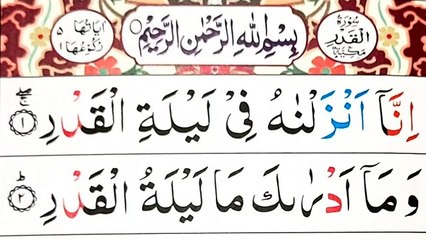 سُوْرَةُ الْقَدْرِ مَكِّيَّةٌ
بِسْمِ اللهِ الرَّحْمٰنِ الرَّحِيْمِ
اٰيَاتُهَا ٥
رُكُوْعُهَا ١
اِنَّاۤ اَنْزَلْنٰهُ فِيْ لَيْلَةِ الْقَدْرِ ۚۖ ﴿۱﴾
وَمَاۤ اَدْرٰىكَ مَا لَيْلَةُ الْقَدْرِ ؕ ﴿۲﴾